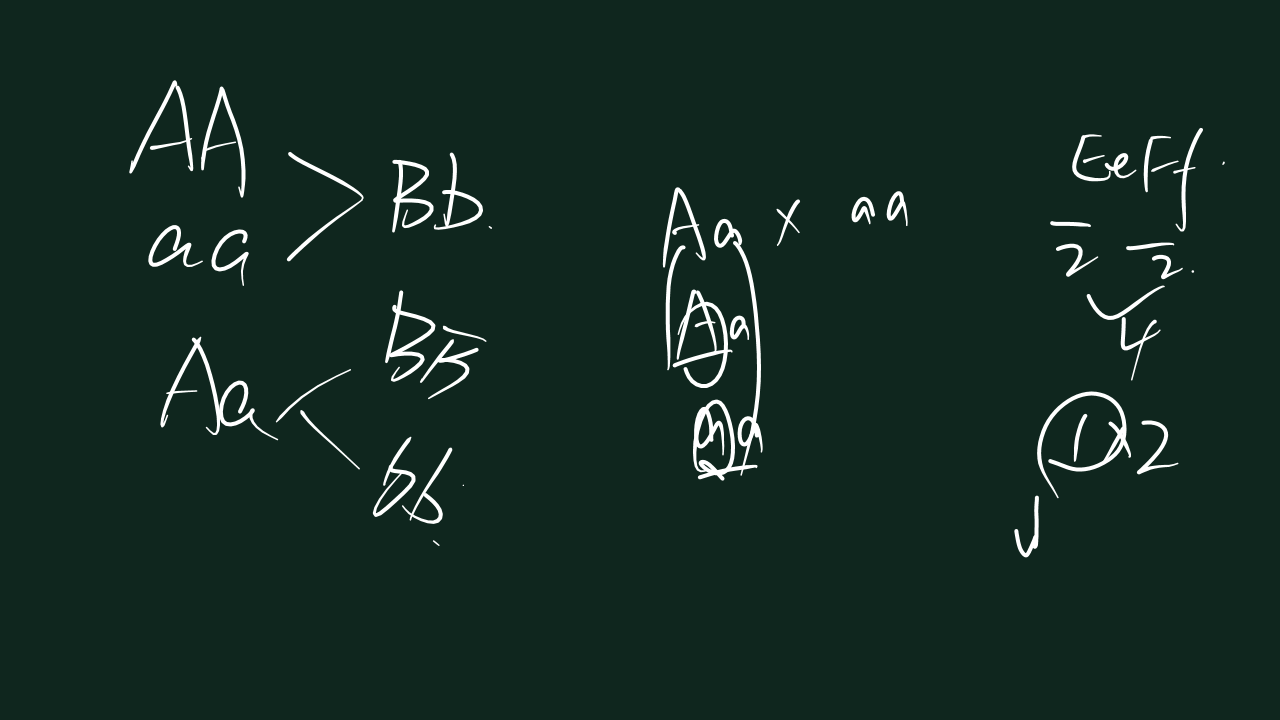 AA
aa
Bb
Aa
BB
bb
Aa × aa
Aa
aa
EeFf
2 2
4
1×2